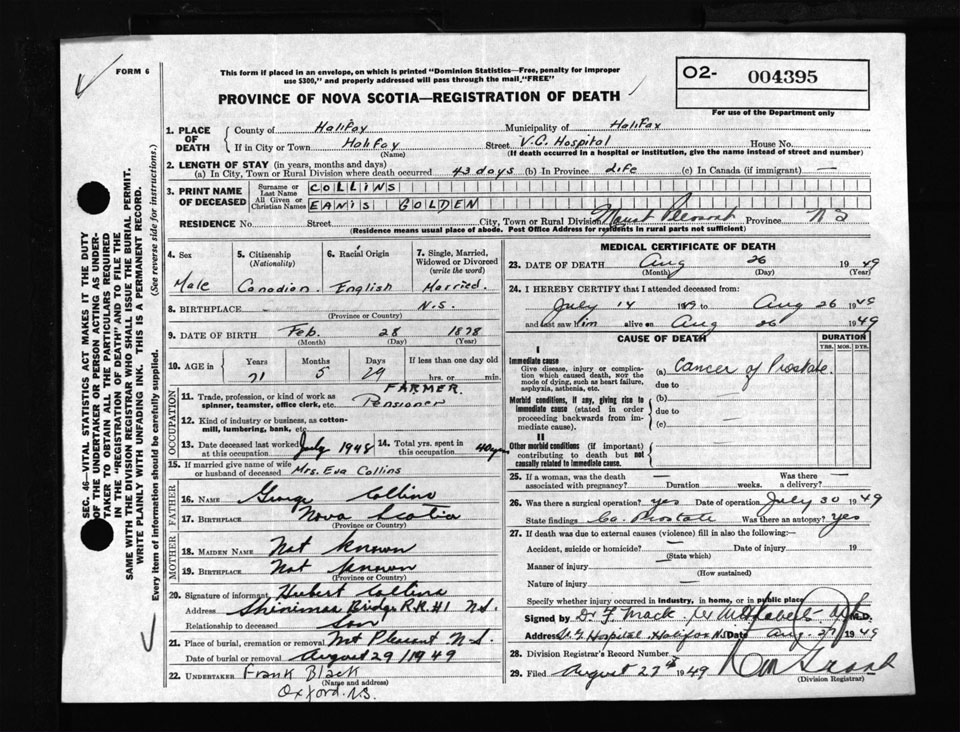 FORM 6
This form if placed in an envelope, on which is printed "Dominion Statistics—Free, penalty for improper
use $300," and properly addressed will pass through the mail "FREE"
O2- 004395
For use of the Department only
PROVINCE OF NOVA SCOTIA—REGISTRATION OF DEATH
SEC. 46—VITAL STATISTICS ACT MAKES IT THE DUTY
OF THE UNDERTAKER OR PERSON ACTING AS UNDER-
TAKER TO OBTAIN ALL THE PARTICULARS REQUIRED
IN THE "REGISTRATION OF DEATH" AND TO FILE THE
SAME WITH THE DIVISION REGISTRAR WHO SHALL ISSUE THE BURIAL PERMIT.
WRITE PLAINLY WITH UNFADING INK. THIS IS A PERMANENT RECORD.
Every item of information should be carefully supplied. (See reverse side for instructions.)
1. PLACE OF DEATH
County of Halifax Municipality of Halifax
If in City or Town Halifax Street V.G. Hospital House No.
(Name) (If death occurred in a hospital or institution, give the name instead of street and number)
2. LENGTH OF STAY (in years, months and days)
(a) In City, Town or Rural Division where death occurred 43 days (b) In Province Life (c) In Canada (if immigrant) —
3. PRINT NAME OF DECEASED
Surname or Last Name COLLINS
All Given or Christian Names EANIS GOLDEN
RESIDENCE No. Street City, Town or Rural Division Mount Pleasant Province N S
(Residence means usual place of abode. Post Office Address for residents in rural parts not sufficient)
4. Sex 5. Citizenship (Nationality) 6. Racial Origin 7. Single, Married, Widowed or Divorced (write the word)
Male Canadian. English Married.
8. BIRTHPLACE N.S.
(Province or Country)
9. DATE OF BIRTH Feb. 28 1878
(Month) (Day) (Year)
10. AGE in Years Months Days If less than one day old
71 5 29 hrs. or min.
OCCUPATION
11. Trade, profession, or kind of work as spinner, teamster, office clerk, etc. FARMER. Pensioner
12. Kind of industry or business, as cotton-mill, lumbering, bank, etc.
13. Date deceased last worked at this occupation July 1948 14. Total yrs. spent in this occupation 40 years
15. If married give name of wife or husband of deceased Mrs. Eva Collins
FATHER
16. NAME George Collins
17. BIRTHPLACE Nova Scotia
(Province or Country)
MOTHER
18. MAIDEN NAME Not known
19. BIRTHPLACE Not known
(Province or Country)
20. Signature of informant Hubert Collins
Address Shinimas Bridge R.R.#1 N.S.
Relationship to deceased Son
21. Place of burial, cremation or removal Mt Pleasant N.S.
Date of burial or removal August 29/1949
22. UNDERTAKER Frank Black
(Name and address)
Oxford. N.S.
MEDICAL CERTIFICATE OF DEATH
23. DATE OF DEATH Aug 26 1949
(Month) (Day) (Year)
24. I HEREBY CERTIFY that I attended deceased from:
July 14 1949 to Aug 26 1949
and last saw him alive on Aug 26 1949
CAUSE OF DEATH DURATION
YRS. MOS. DYS.
I
Immediate cause
Give disease, injury or complication which caused death, NOT the mode of dying, such as heart failure, asphyxia, asthenia, etc.
(a) Cancer of Prostate.
due to
Morbid conditions, if any, giving rise to immediate cause (stated in order proceeding backwards from immediate cause).
(b) —
due to
(c) —
II
Other morbid conditions (if important) contributing to death but not causally related to immediate cause.
25. If a woman, was the death associated with pregnancy? — Duration weeks. Was there a delivery? —
26. Was there a surgical operation? yes Date of operation July 30 1949
State findings Ca. Prostate Was there an autopsy? yes
27. If death was due to external causes (violence) fill in also the following:
Accident, suicide or homicide? — Date of injury 19
(State which)
Manner of injury —
(How sustained)
Nature of injury —
Specify whether injury occurred in industry, in home, or in public place
Signed by Dr F. Mack M.D.
Address V. G Hospital, Halifax N.S Date Aug. 27 1949
28. Division Registrar's Record Number
29. Filed August 27th 1949 Grant
(Division Registrar)